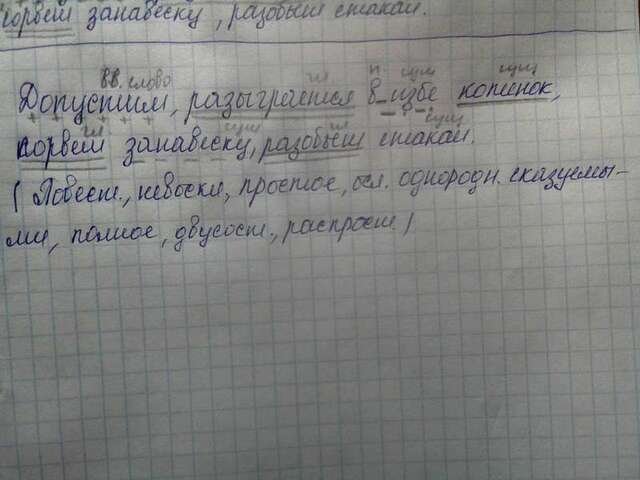 порвет занавеску, разобьет стакан.
вв. слово гл п сущ сущ
Допустим, разыграется в избе котенок,
гл сущ гл сущ
порвет занавеску, разобьет стакан.
( Повест., невоскл, простое, осл. однородн. сказуемы-
ми, полное, двусост., распрост. )